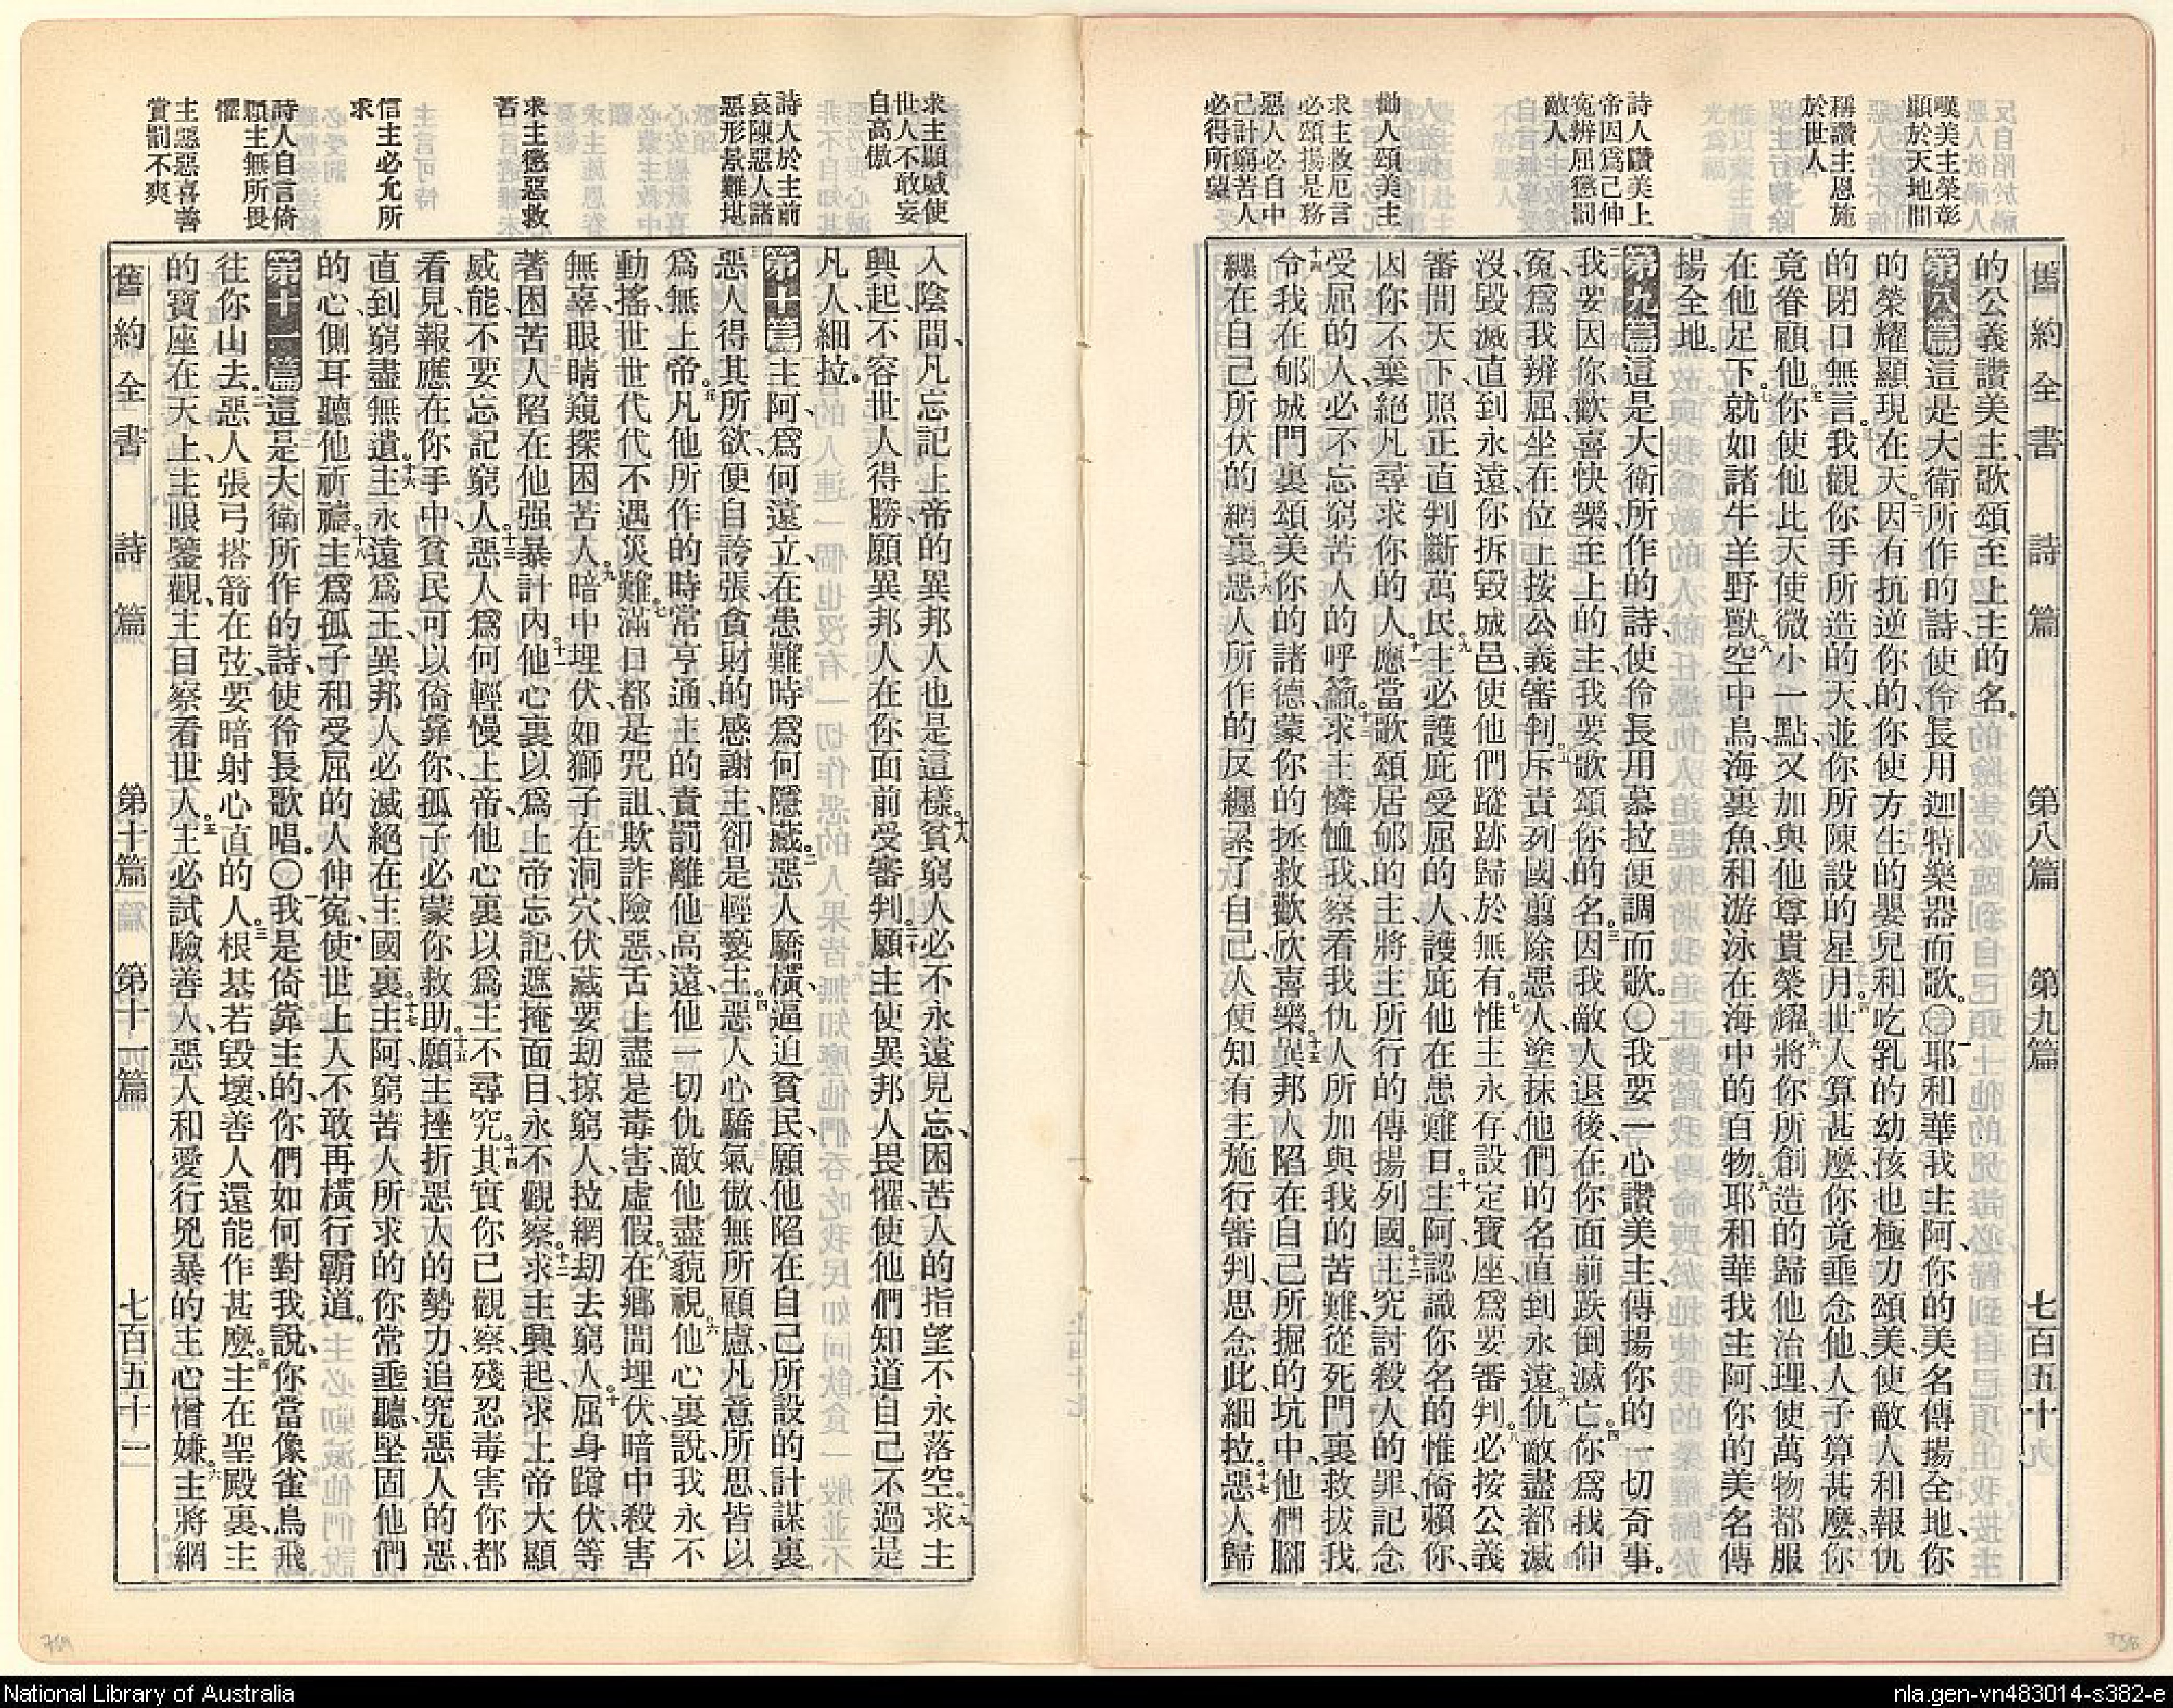 舊約全書 詩篇 第八篇 第九篇 七百五十
嘆美主榮彰
顯於天地間
稱讚主恩施
於世人
詩人讚美上
帝因爲己伸
寃辨屈懲罰
敵人
勸人頌美主
求主救厄言
必頌揚是務
惡人必自中
己計窮苦人
必得所望
的公義、讚美主、歌頌至上主的名。
第八篇這是大衛所作的詩、使伶長用迦特樂器而歌。〇一耶和華我主阿、你的美名傳揚全地、你
的榮耀顯現在天。二因有抗逆你的、你使方生的嬰兒和吃乳的幼孩也極力頌美、使敵人和報仇
的閉口無言。三我觀你手所造的天、並你所陳設的星月。四世人算甚麼、你竟垂念他、人子算甚麼、你
竟眷顧他。五你使他比天使微小一點、又加與他尊貴榮耀。六將你所創造的歸他治理、使萬物都服
在他足下。七就如諸牛羊野獸。八空中鳥海裏魚和游泳在海中的百物。九耶和華我主阿、你的美名傳
揚全地。
第九篇這是大衛所作的詩、使伶長用慕拉便調而歌。〇一我要一心讚美主、傳揚你的一切奇事。
二我要因你歡喜快樂、至上的主、我要歌頌你的名。三因我敵人退後、在你面前跌倒滅亡。四你爲我伸
寃、爲我辨屈、坐在位上、按公義審判。五斥責列國、翦除惡人、塗抹他們的名、直到永遠。六仇敵盡都滅
沒、毀滅直到永遠、你拆毀城邑、使他們蹤跡歸於無有。七惟主永存、設定寶座爲要審判。八必按公義
審問天下、照正直判斷萬民。九主必護庇受屈的人、護庇他在患難日。十主阿、認識你名的惟倚賴你、
因你不棄絕凡尋求你的人。十一應當歌頌居郇的主、將主所行的傳揚列國。十二主究討殺人的罪、記念
受屈的人、必不忘窮苦人的呼籲。十三求主憐恤我、察看我仇人所加與我的苦難、從死門裏救拔我、
十四令我在郇城門裏、頌美你的諸德、蒙你的拯救、歡欣喜樂。十五異邦人陷在自己所掘的坑中、他們腳
纏在自己所伏的網裏。十六惡人所作的反纏累了自己、人便知有主施行審判、思念此、細拉。十七惡人歸
求主顯威使
世人不敢妄
自高傲
詩人於主前
哀陳惡人諸
惡形景難堪
求主懲惡救
苦
信主必允所
求
詩人自言倚
賴主無所畏
懼
主惡惡喜善
賞罰不爽
入陰間、凡忘記上帝的異邦人也是這樣。十八貧窮人必不永遠見忘、困苦人的指望不永落空。十九求主
興起、不容世人得勝、願異邦人在你面前受審判。二十願主使異邦人畏懼、使他們知道自己不過是
凡人、細拉。
第十篇一主阿、爲何遠立、在患難時爲何隱藏。二惡人驕橫、逼迫貧民、願他陷在自己所設的計謀裏。
三惡人得其所欲、便自誇張、貪財的感謝主、卻是輕褻主。四惡人心驕氣傲、無所顧慮、凡意所思、皆以
爲無上帝。五凡他所作的時常亨通、主的責罰離他高遠、他一切仇敵、他盡藐視。六他心裏說、我永不
動搖、世世代代不遇災難。七滿口都是咒詛欺詐險惡、舌上盡是毒害虛假。八在鄉間埋伏、暗中殺害
無辜、眼睛窺探困苦人。九暗中埋伏、如獅子在洞穴、伏藏要劫掠窮人、拉網劫去窮人。十屈身蹲伏、等
著困苦人陷在他强暴計內。十一他心裏以爲上帝忘記、遮掩面目、永不觀察。十二求主興起、求上帝大顯
威能、不要忘記窮人。十三惡人爲何輕慢上帝、他心裏以爲主不尋究。十四其實你已觀察、殘忍毒害你都
看見、報應在你手中、貧民可以倚靠你、孤子必蒙你救助。十五願主挫折惡人的勢力、追究惡人的惡、
直到窮盡無遺。十六主永遠爲王、異邦人必滅絕在主國裏。十七主阿、窮苦人所求的、你常垂聽、堅固他們
的心、側耳聽他祈禱。十八主爲孤子和受屈的人伸寃、使世上人不敢再橫行霸道。
第十一篇這是大衛所作的詩、使伶長歌唱。〇一我是倚靠主的、你們如何對我說、你當像雀鳥飛
往你山去。二惡人張弓搭箭在弦、要暗射心直的人。三根基若毀壞、善人還能作甚麼。四主在聖殿裏、主
的寶座在天上、主眼鑒觀、主目察看世人。五主必試驗善人、惡人和愛行兇暴的、主心憎嫌。六主將網
舊約全書 詩篇 第十篇 第十一篇 七百五十二
National Library of Australia
nla.gen-vn483014-s382-e